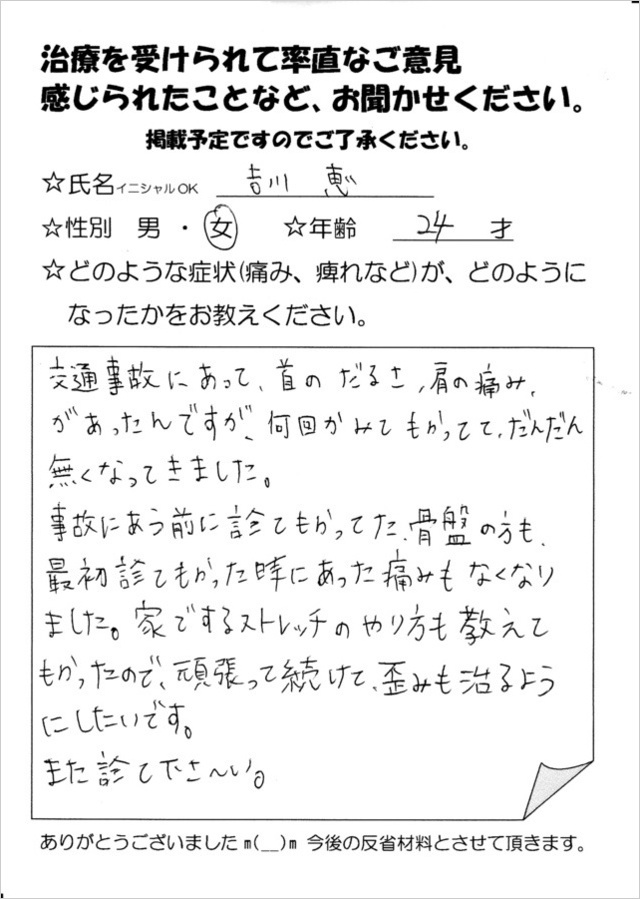 治療を受けられて率直なご意見
感じられたことなど、お聞かせください。
掲載予定ですのでご了承ください。
☆氏名イニシャルOK 吉川 恵
☆性別 男 ・ 女 ☆年齢 24 才
☆どのような症状(痛み、痺れなど)が、どのように
なったかをお教えください。
交通事故にあって、首のだるさ、肩の痛み、
があったんですが、何回かみてもらってて、だんだん
無くなってきました。
事故にあう前に診てもらってた、骨盤の方も、
最初診てもらった時にあった痛みもなくなり
ました。家でするストレッチのやり方も教えて
もらったので、頑張って続けて、歪みも治るよう
にしたいです。
また診て下さ〜い。
ありがとうございましたm(__)m 今後の反省材料とさせて頂きます。